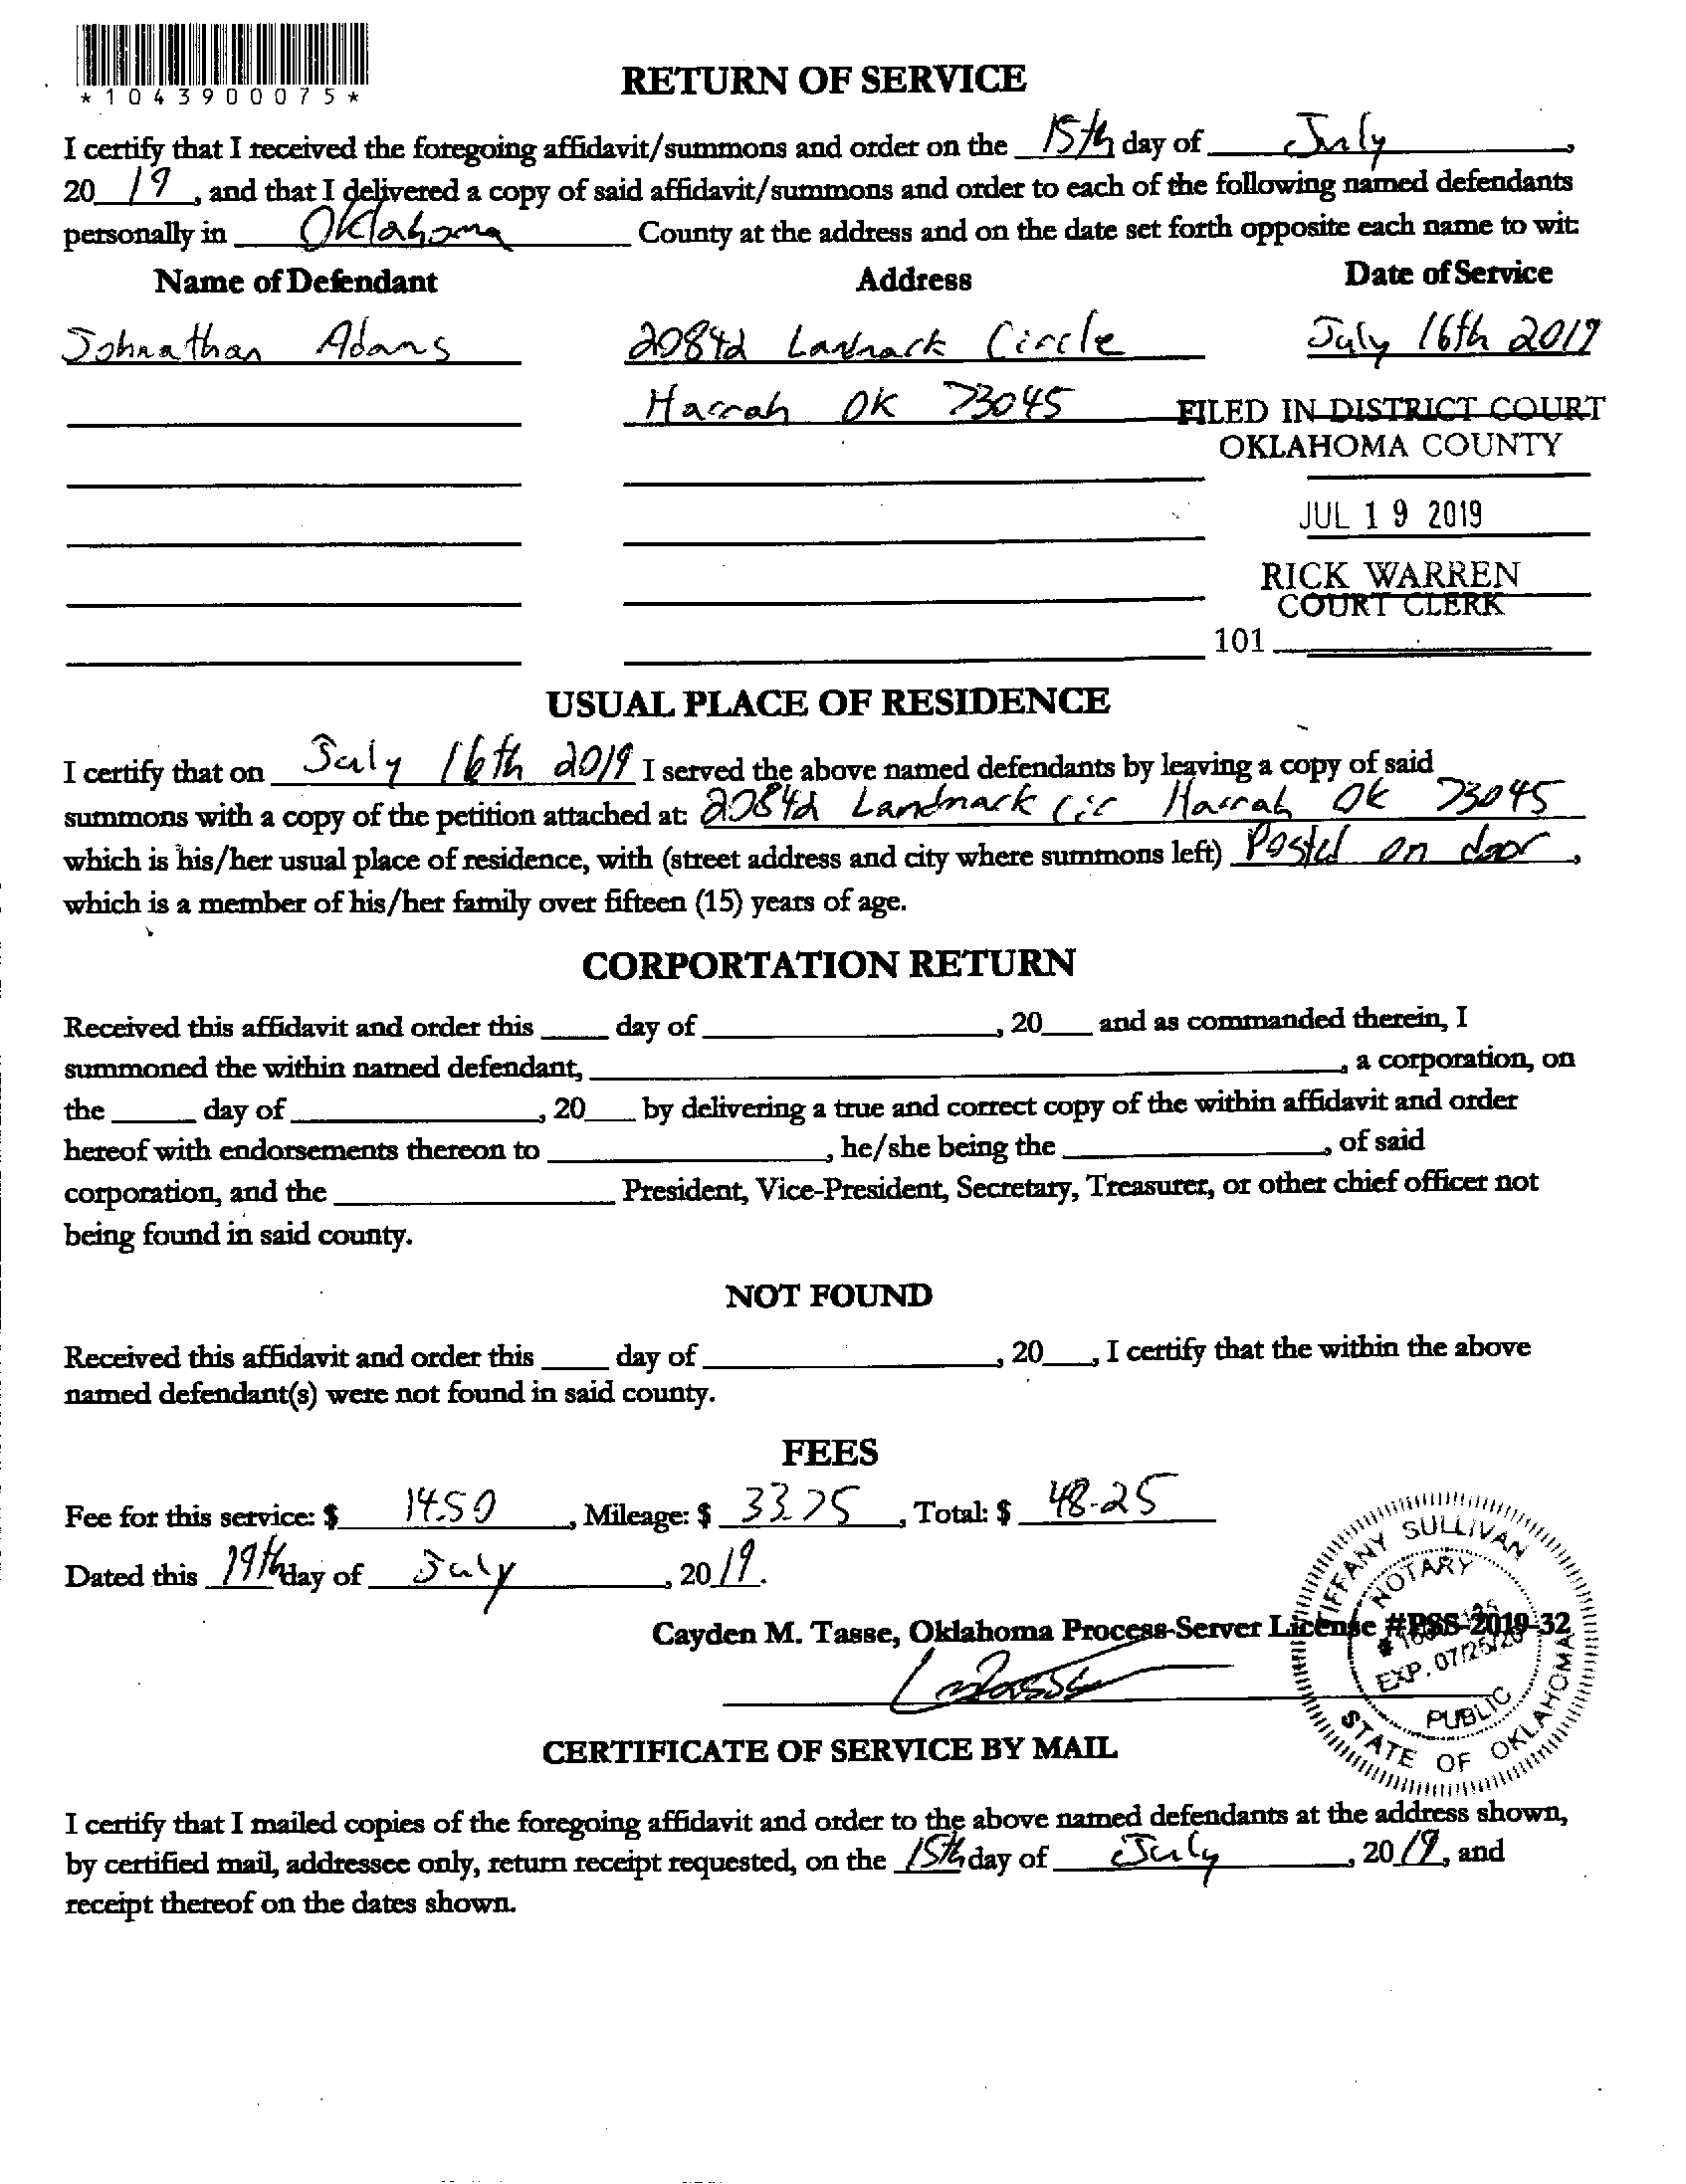 *1043900075*
RETURN OF SERVICE
I certify that I received the foregoing affidavit/summons and order on the 15th day of July,
2019, and that I delivered a copy of said affidavit/summons and order to each of the following named defendants
personally in Oklahoma County at the address and on the date set forth opposite each name to wit:
Name of Defendant Address Date of Service
Johnathan Adams 20842 Landmark Circle July 16th 2019
Harrah OK 73045
FILED IN DISTRICT COURT
OKLAHOMA COUNTY
JUL 19 2019
RICK WARREN
COURT CLERK
101
USUAL PLACE OF RESIDENCE
I certify that on July 16th 2019 I served the above named defendants by leaving a copy of said
summons with a copy of the petition attached at: 20842 Landmark Cir Harrah OK 73045
which is his/her usual place of residence, with (street address and city where summons left) Posted on door,
which is a member of his/her family over fifteen (15) years of age.
CORPORTATION RETURN
Received this affidavit and order this ____ day of ____, 20__ and as commanded therein, I
summoned the within named defendant, ____, a corporation, on
the ____ day of ____, 20__ by delivering a true and correct copy of the within affidavit and order
hereof with endorsements thereon to ____, he/she being the ____, of said
corporation, and the ____ President, Vice-President, Secretary, Treasurer, or other chief officer not
being found in said county.
NOT FOUND
Received this affidavit and order this ____ day of ____, 20__, I certify that the within the above
named defendant(s) were not found in said county.
FEES
Fee for this service: $ 14.50, Mileage: $ 33.75, Total: $ 48.25
Dated this 19th day of July, 2019.
Cayden M. Tasse, Oklahoma Process-Server License #PSS-2019-32
TIFFANY SULLIVAN
NOTARY
EXP. 07/25/20
PUBLIC
STATE OF OKLAHOMA
CERTIFICATE OF SERVICE BY MAIL
I certify that I mailed copies of the foregoing affidavit and order to the above named defendants at the address shown,
by certified mail, addressee only, return receipt requested, on the 15th day of July, 2019, and
receipt thereof on the dates shown.